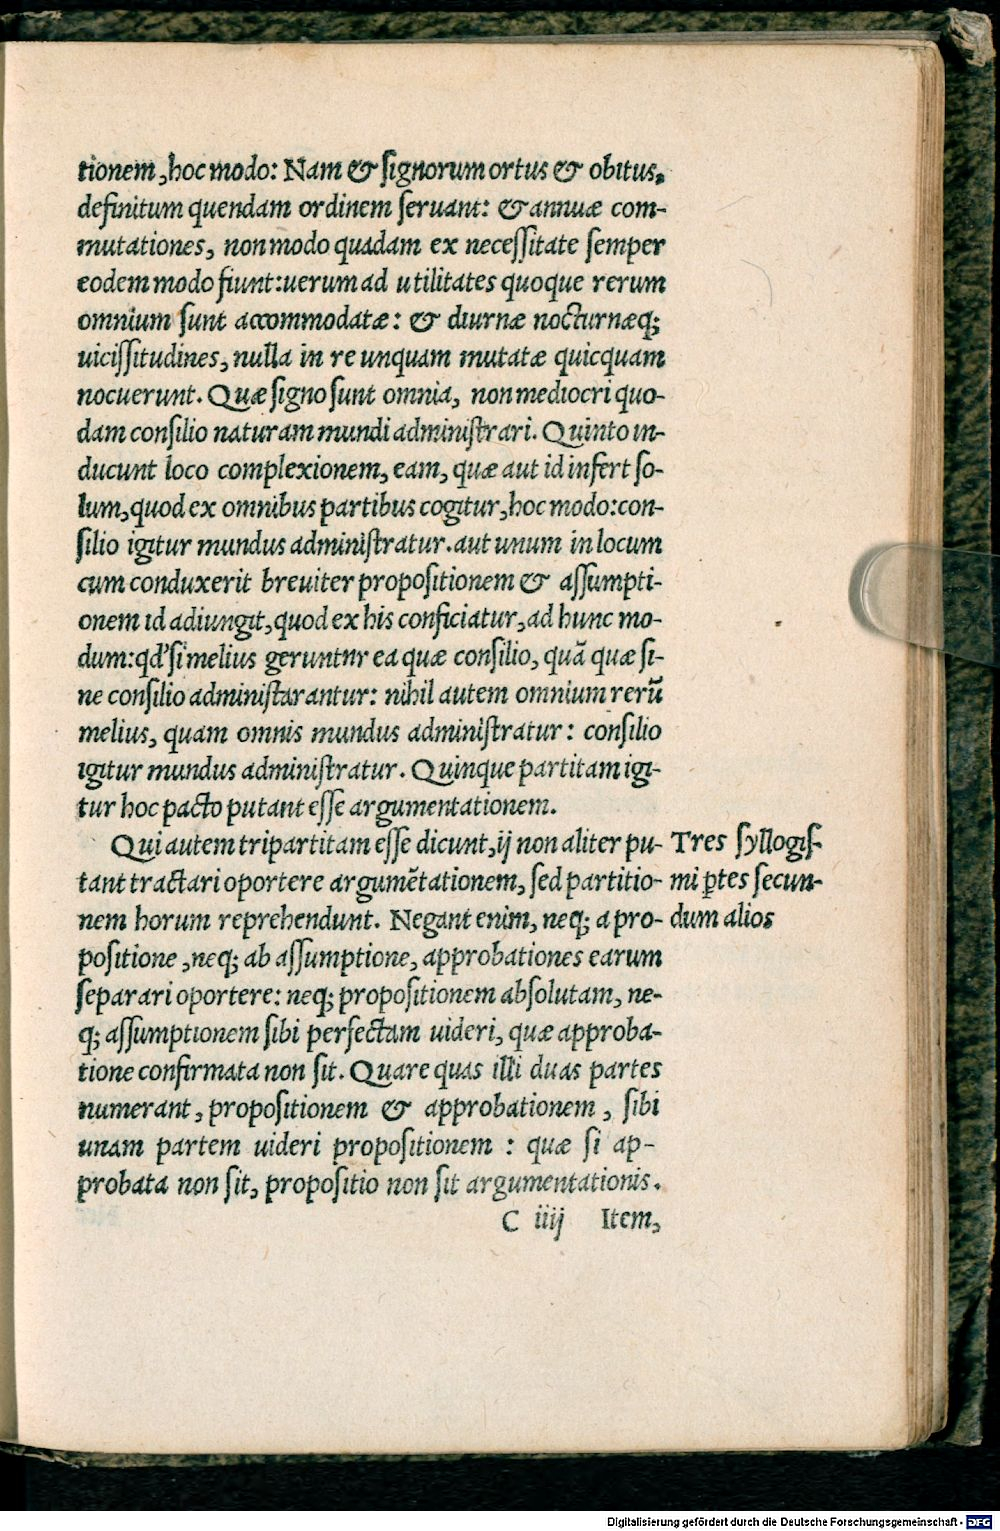 tionem, hoc modo: Nam & ſignorum ortus & obitus,
definitum quendam ordinem ſeruant: & annuæ com-
mutationes, non modo quadam ex neceſſitate ſemper
eodem modo fiunt: uerum ad utilitates quoque rerum
omnium ſunt accommodatæ: & diurnæ nocturnæq;
uiciſſitudines, nulla in re unquam mutatæ quicquam
nocuerunt. Quæ ſigno ſunt omnia, non mediocri quo-
dam conſilio naturam mundi adminiſtrari. Quinto in-
ducunt loco complexionem, eam, quæ aut id infert ſo-
lum, quod ex omnibus partibus cogitur, hoc modo: con-
ſilio igitur mundus adminiſtratur. aut unum in locum
cum conduxerit breuiter propoſitionem & aſſumpti-
onem id adiungit, quod ex his conficiatur, ad hunc mo-
dum: qd' ſi melius geruntnr ea quæ conſilio, quã quæ ſi-
ne conſilio adminiſtarantur: nihil autem omnium rerũ
melius, quam omnis mundus adminiſtratur: conſilio
igitur mundus adminiſtratur. Quinque partitam igi-
tur hoc pacto putant eſſe argumentationem.
Qui autem tripartitam eſſe dicunt, ij non aliter pu-
tant tractari oportere argumẽtationem, ſed partitio-
nem horum reprehendunt. Negant enim, neq; a pro-
poſitione, neq; ab aſſumptione, approbationes earum
ſeparari oportere: neq; propoſitionem abſolutam, ne-
q; aſſumptionem ſibi perfectam uideri, quæ approba-
tione confirmata non ſit. Quare quas illi duas partes
numerant, propoſitionem & approbationem, ſibi
unam partem uideri propoſitionem: quæ ſi ap-
probata non ſit, propoſitio non ſit argumentationis.
C iiij Item,
Tres ſyllogiſ-
mi ꝑtes ſecun-
dum alios
Digitalisierung gefördert durch die Deutsche Forschungsgemeinschaft - DFG